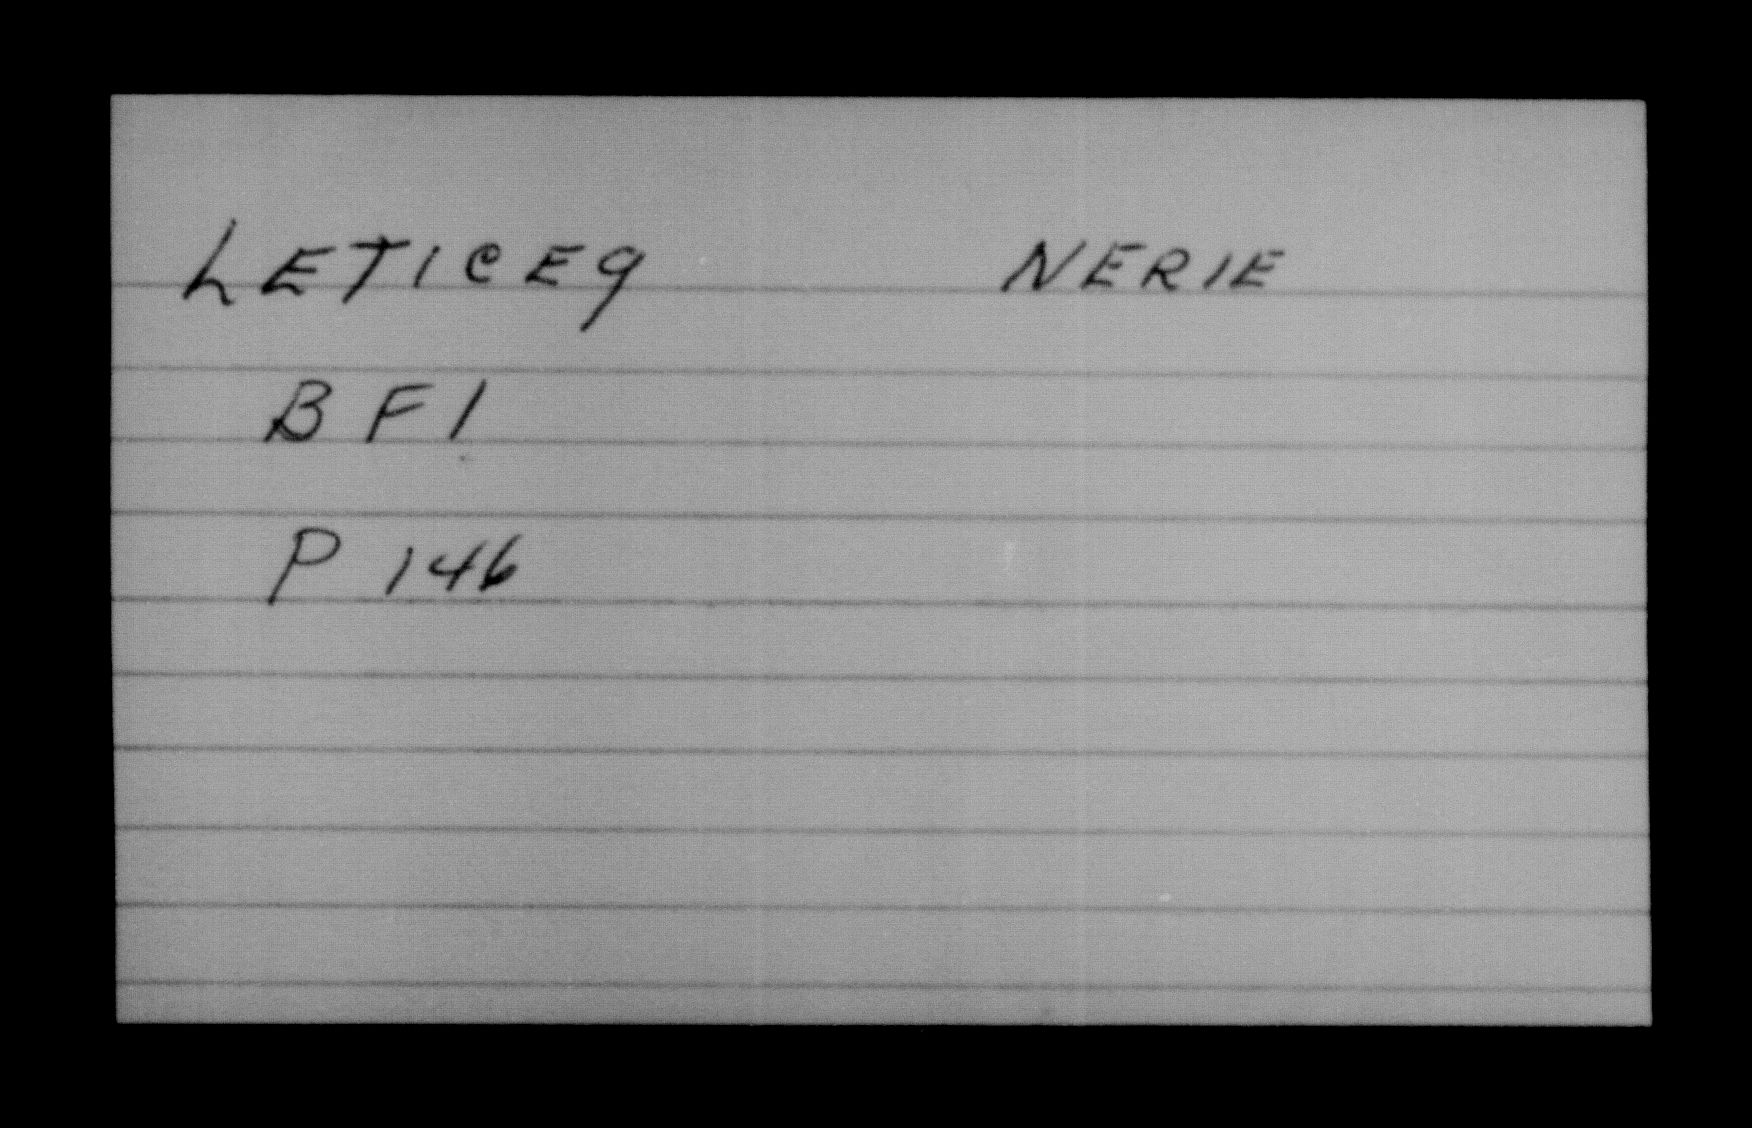 LETICEq NERIE
B F 1
P 146